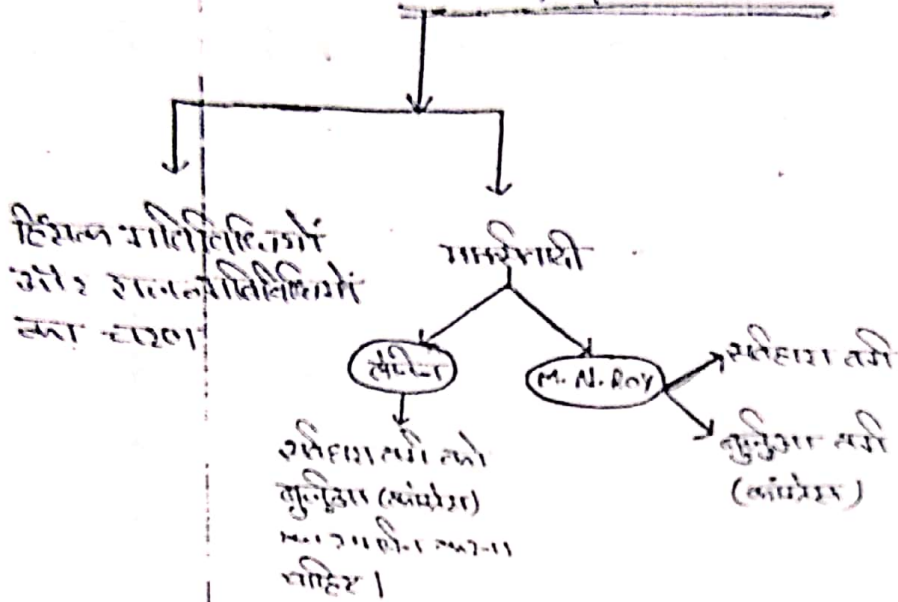 हिंसक गतिविधियों
और हालन गतिविधियों
का चरण
मार्क्सवादी
लेनिन
M. N. ROY
सर्वहारा वर्ग
बुर्जुआ वर्ग
(कांग्रेस)
सर्वहारा वर्ग को
बुर्जुआ (कांग्रेस)
का करना
चाहिए।